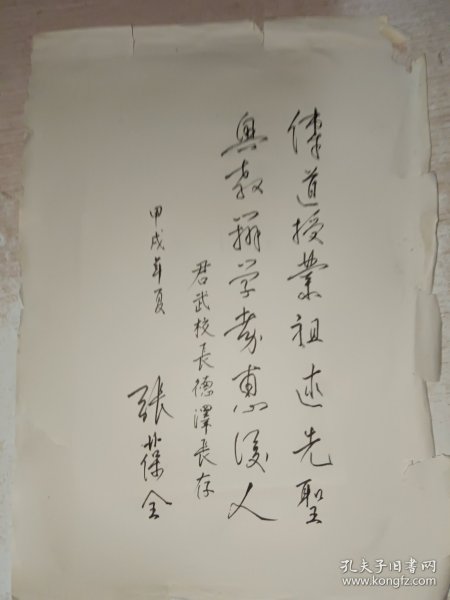 傳道授業祖述先聖
興教辦学嘉惠後人
君武校長德澤長存
甲戌年夏
張葆全
孔夫子旧书网
www.kongfz.com